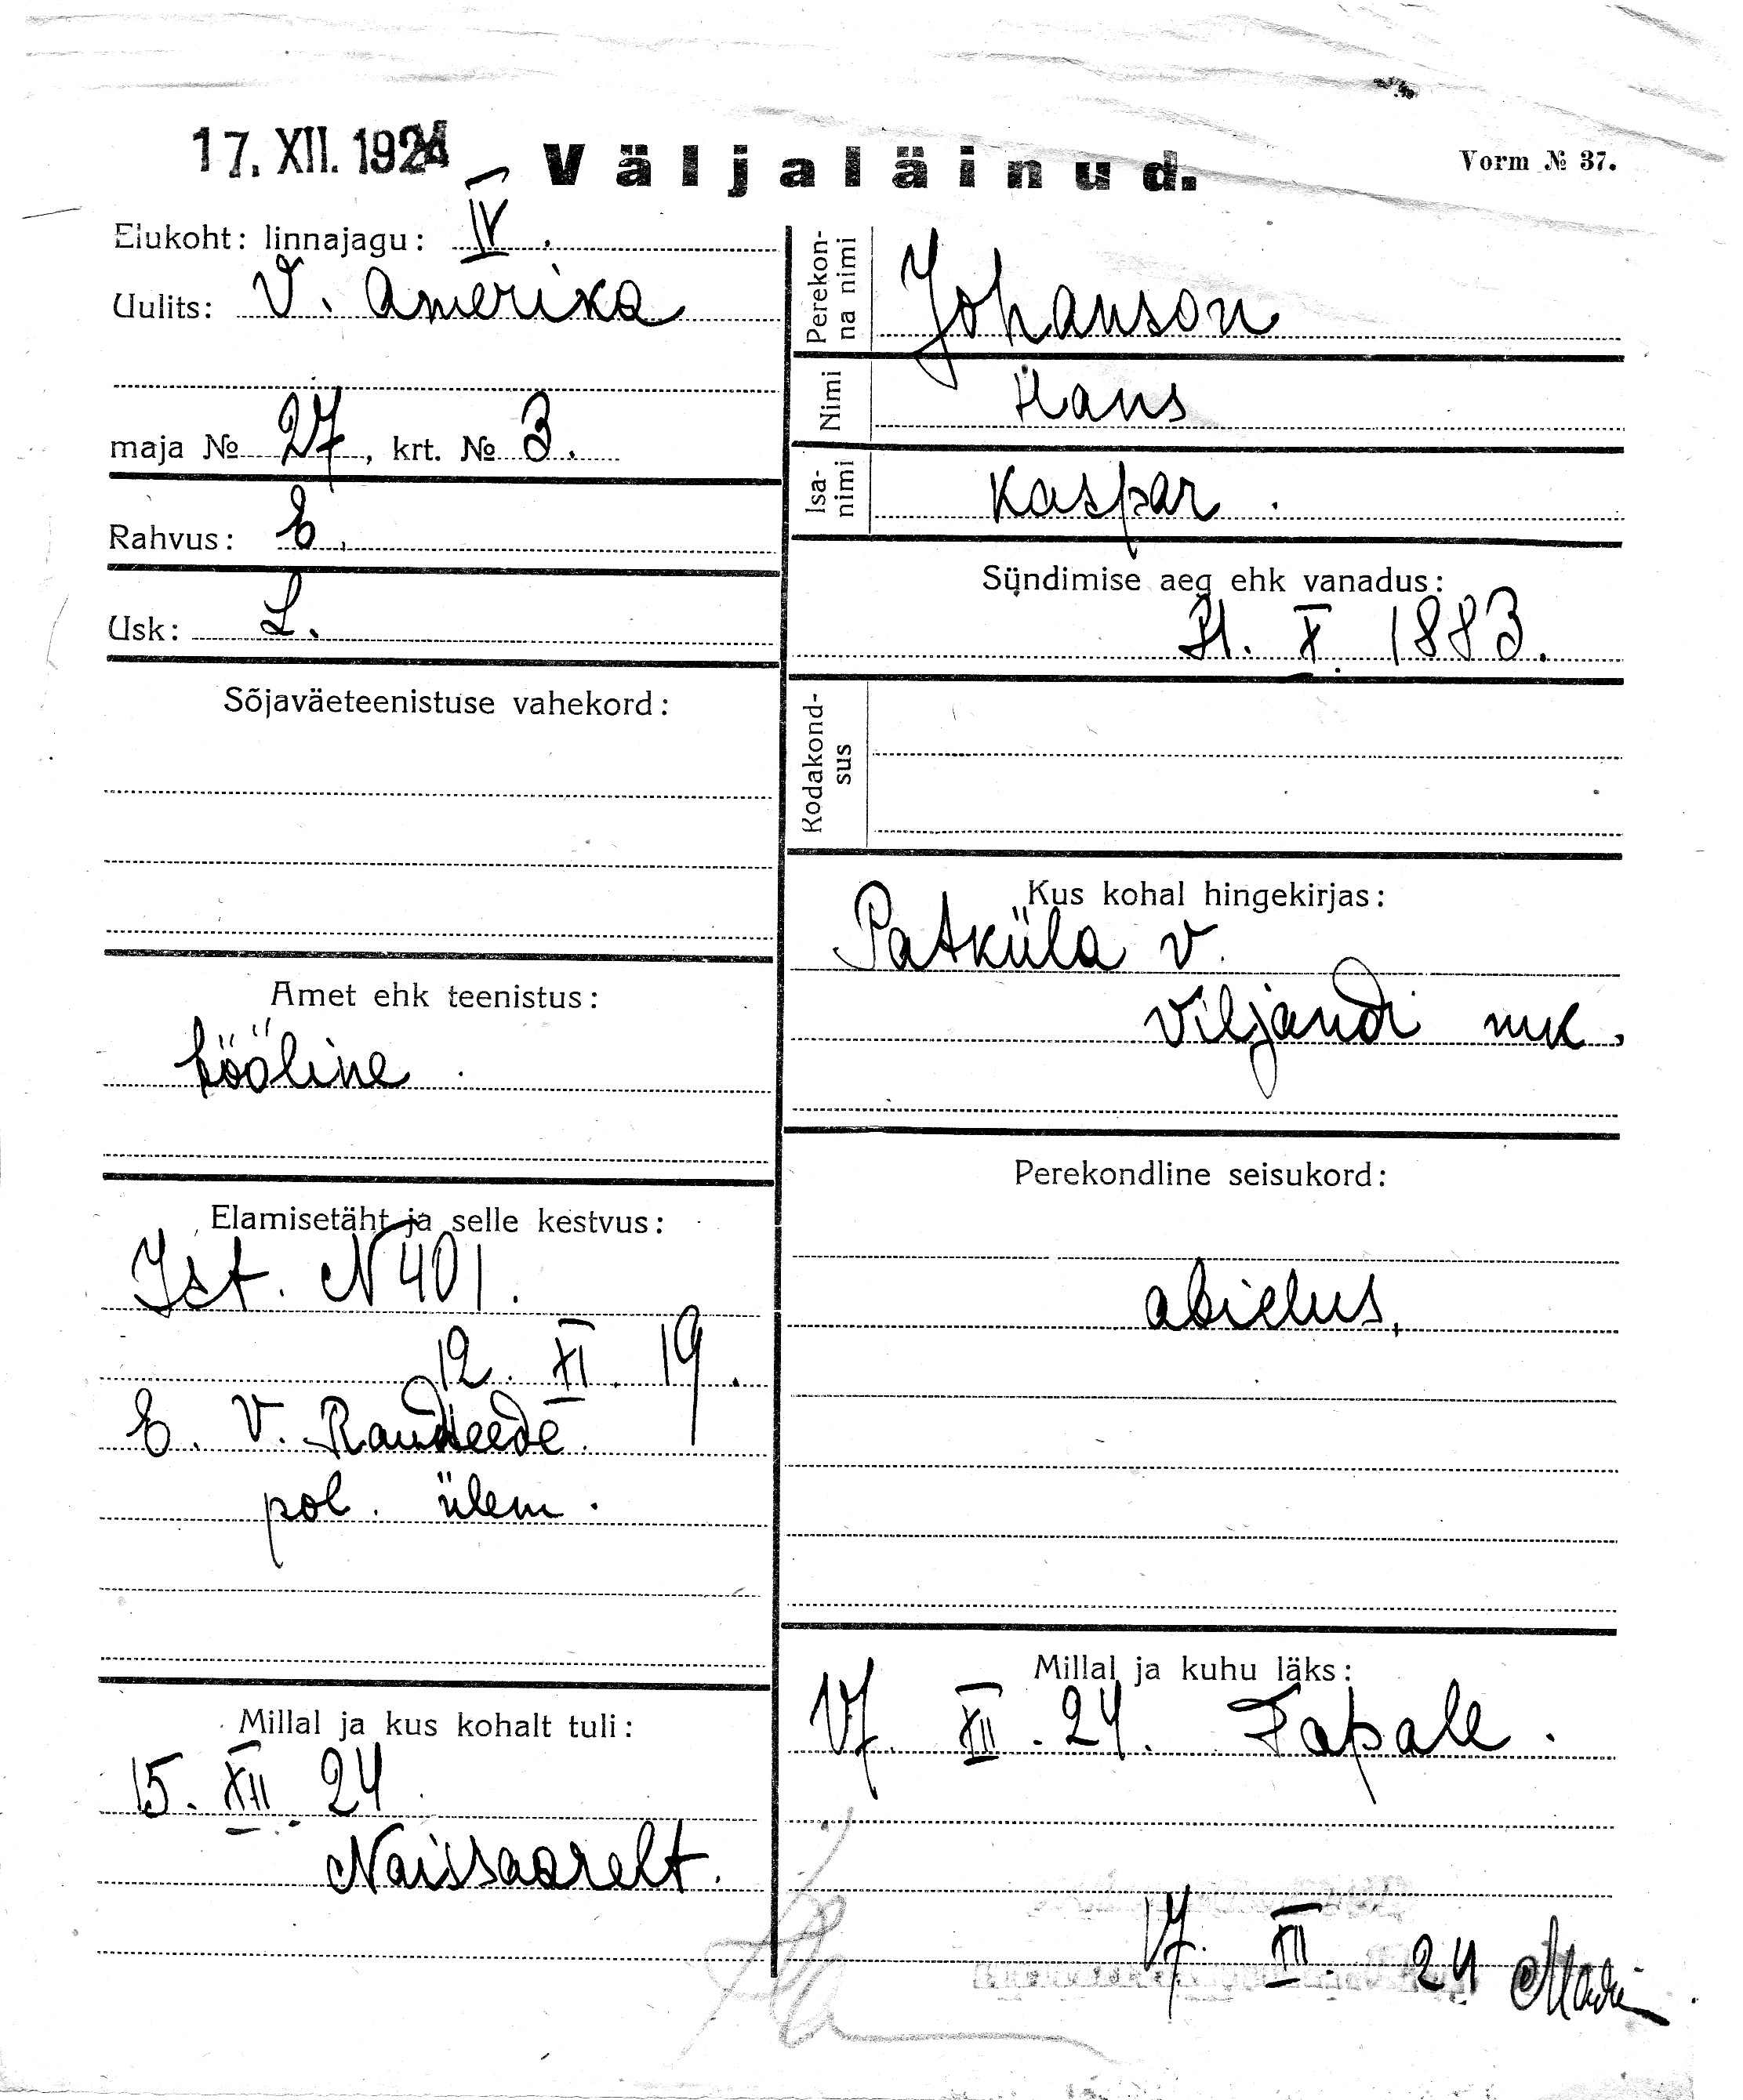 17. XII. 1924
Väljaläinud.
Vorm № 37.
Elukoht: linnajagu: IV.
Uulits: V. Amerika
maja № 27, krt. № 3.
Rahvus: E.
Usk: L.
Sõjaväeteenistuse vahekord:
Amet ehk teenistus:
tööline
Elamisetäht ja selle kestvus:
Ist. N 401.
12. XI. 19.
E. V. Raudteede
pol. ülem.
Millal ja kus kohalt tuli:
15. XII 24
Naissaarelt.
Perekon-
na nimi
Johanson
Nimi
Hans
Isa-
nimi
Kaspar.
Sündimise aeg ehk vanadus:
X. 1883.
Kodakond-
sus
Kus kohal hingekirjas:
Patküla v.
Viljandi mk.
Perekondline seisukord:
abielus,
Millal ja kuhu läks:
17. XII. 24. Tapale.
17. XII. 24